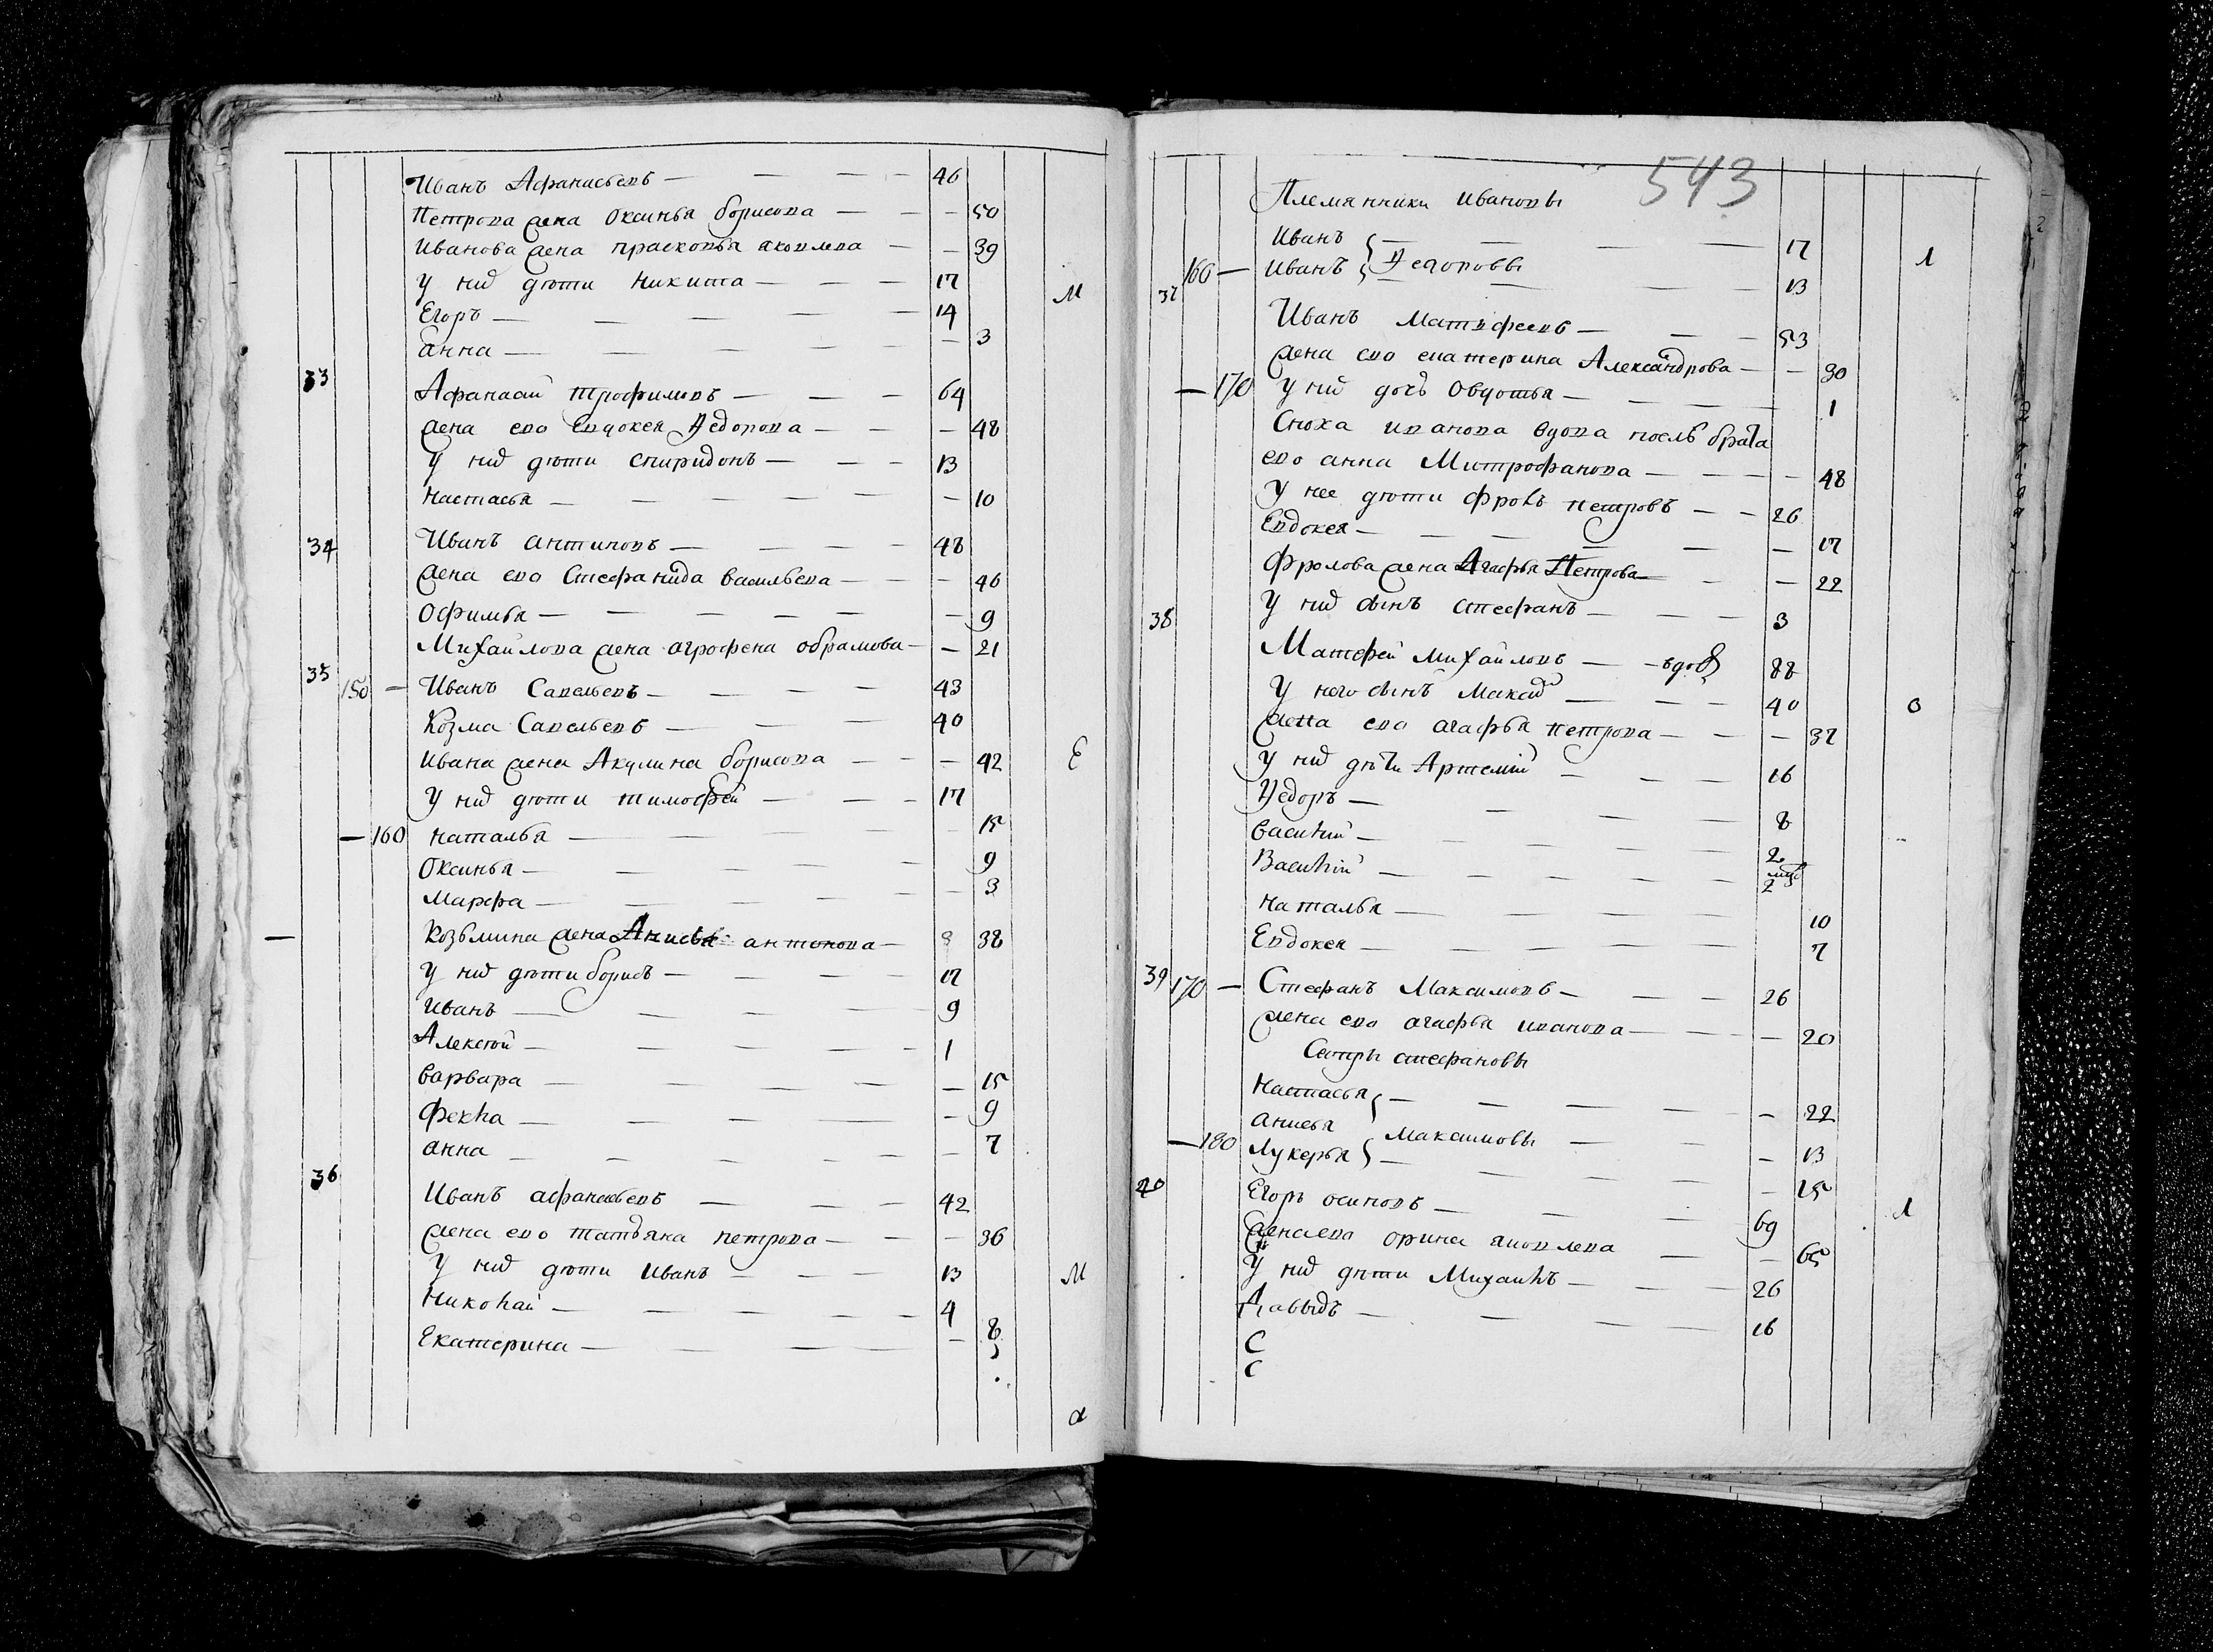 Иванъ Афанасьевъ — — — — 46
Петрова жена Оксинья борисова — — — 50
Иванова жена прасковья яковлева — — 39
У них дѣти Никита — — — 17
М
Егоръ — — — — — 14
анна — — — — — — 3
33
Афанасий Трофимовъ — — — 64
жена ево Евдокея Федорова — — — 48
У них дѣти спиридонъ — — — 13
Настасья — — — — — — 10
34 Иванъ антиповъ — — — — 48
жена ево Стефанида васильева — — — 46
Офимья — — — — — — 9
Михайлова жена агрофена обрамова — — 21
35 150 — Иванъ Савельевъ — — — — 43
Козма Савельевъ — — — 40
Ивана жена Акулина борисова — — — 42
Е
У них дѣти тимофей — — — 17
— 160 Наталья — — — — 15
Оксинья — — — — 9
Марфа — — — — — — 3
Козьмина жена Анисья антонова — 38
У них дѣти борисъ — — — — 17
Иванъ — — — — — 9
Алексѣй — — — — — 1
варвара — — — — — 15
Фекла — — — — — 9
анна — — — — — — 7
36
Иванъ афанасьевъ — — — 42
жена ево татьяна петрова — — — 36
У них дѣти Иванъ — — — 13
М
Николай — — — — — 4
Екатерина — — — — — 8
543
Племянники Ивановы
Иванъ — — — — 17
Л
160 — Иванъ Федоровы — — — 13
37
Иванъ Матвфеевъ — — — 53
жена ево екатерина Александрова — — 30
— 170 У них дочь Овдотья — — — 1
Сноха иванова вдова послѣ брата
ево анна Митрофанова — — — — 48
У нее дѣти фролъ петровъ — — 26
Евдокея — — — — — — 17
Фролова жена Агафья Петрова — — — 22
38
У них сынъ стефанъ — — — 3
Матфей Михайловъ — — вдов 88
У него сынъ Максим — — — 40
О
жена ево агафья петрова — — — 37
У них дѣти Артемий — — — 16
Федоръ — — — — 8
василий — — — — — 2
Василий — — — — — 2
Наталья — — — — 10
Евдокея — — — — 7
39 170 — Стефанъ Максимовъ — — — 26
жена ево агафья иванова — — — 20
Сестры стефановы
Настасья — — — — — 22
анисья Максимовы — — — 13
— 180 Лукерья — — — — — 15
40
Егоръ осиповъ — — — 69
Л
жена ево орина яковлева — — 65
У них дѣти Михаилъ — — — 26
Давыдъ — — — — 16
С
С